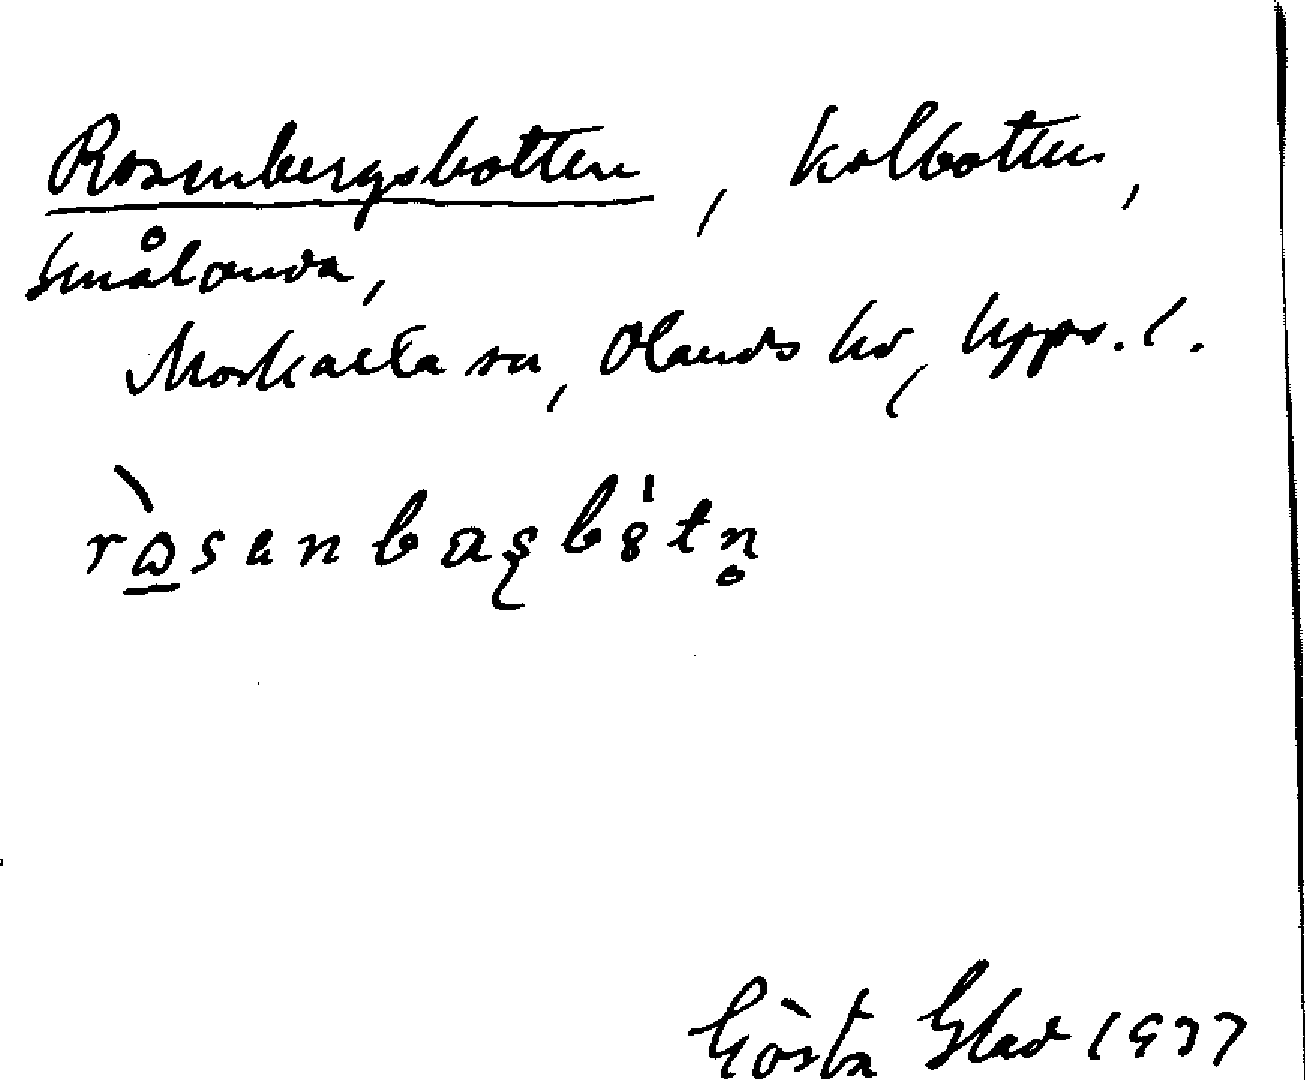 Rosenbergsbotten, kolbotten,
Smålanda,
Morkarla sn, Olands hd, Upps. l.
Gösta Glad 1937